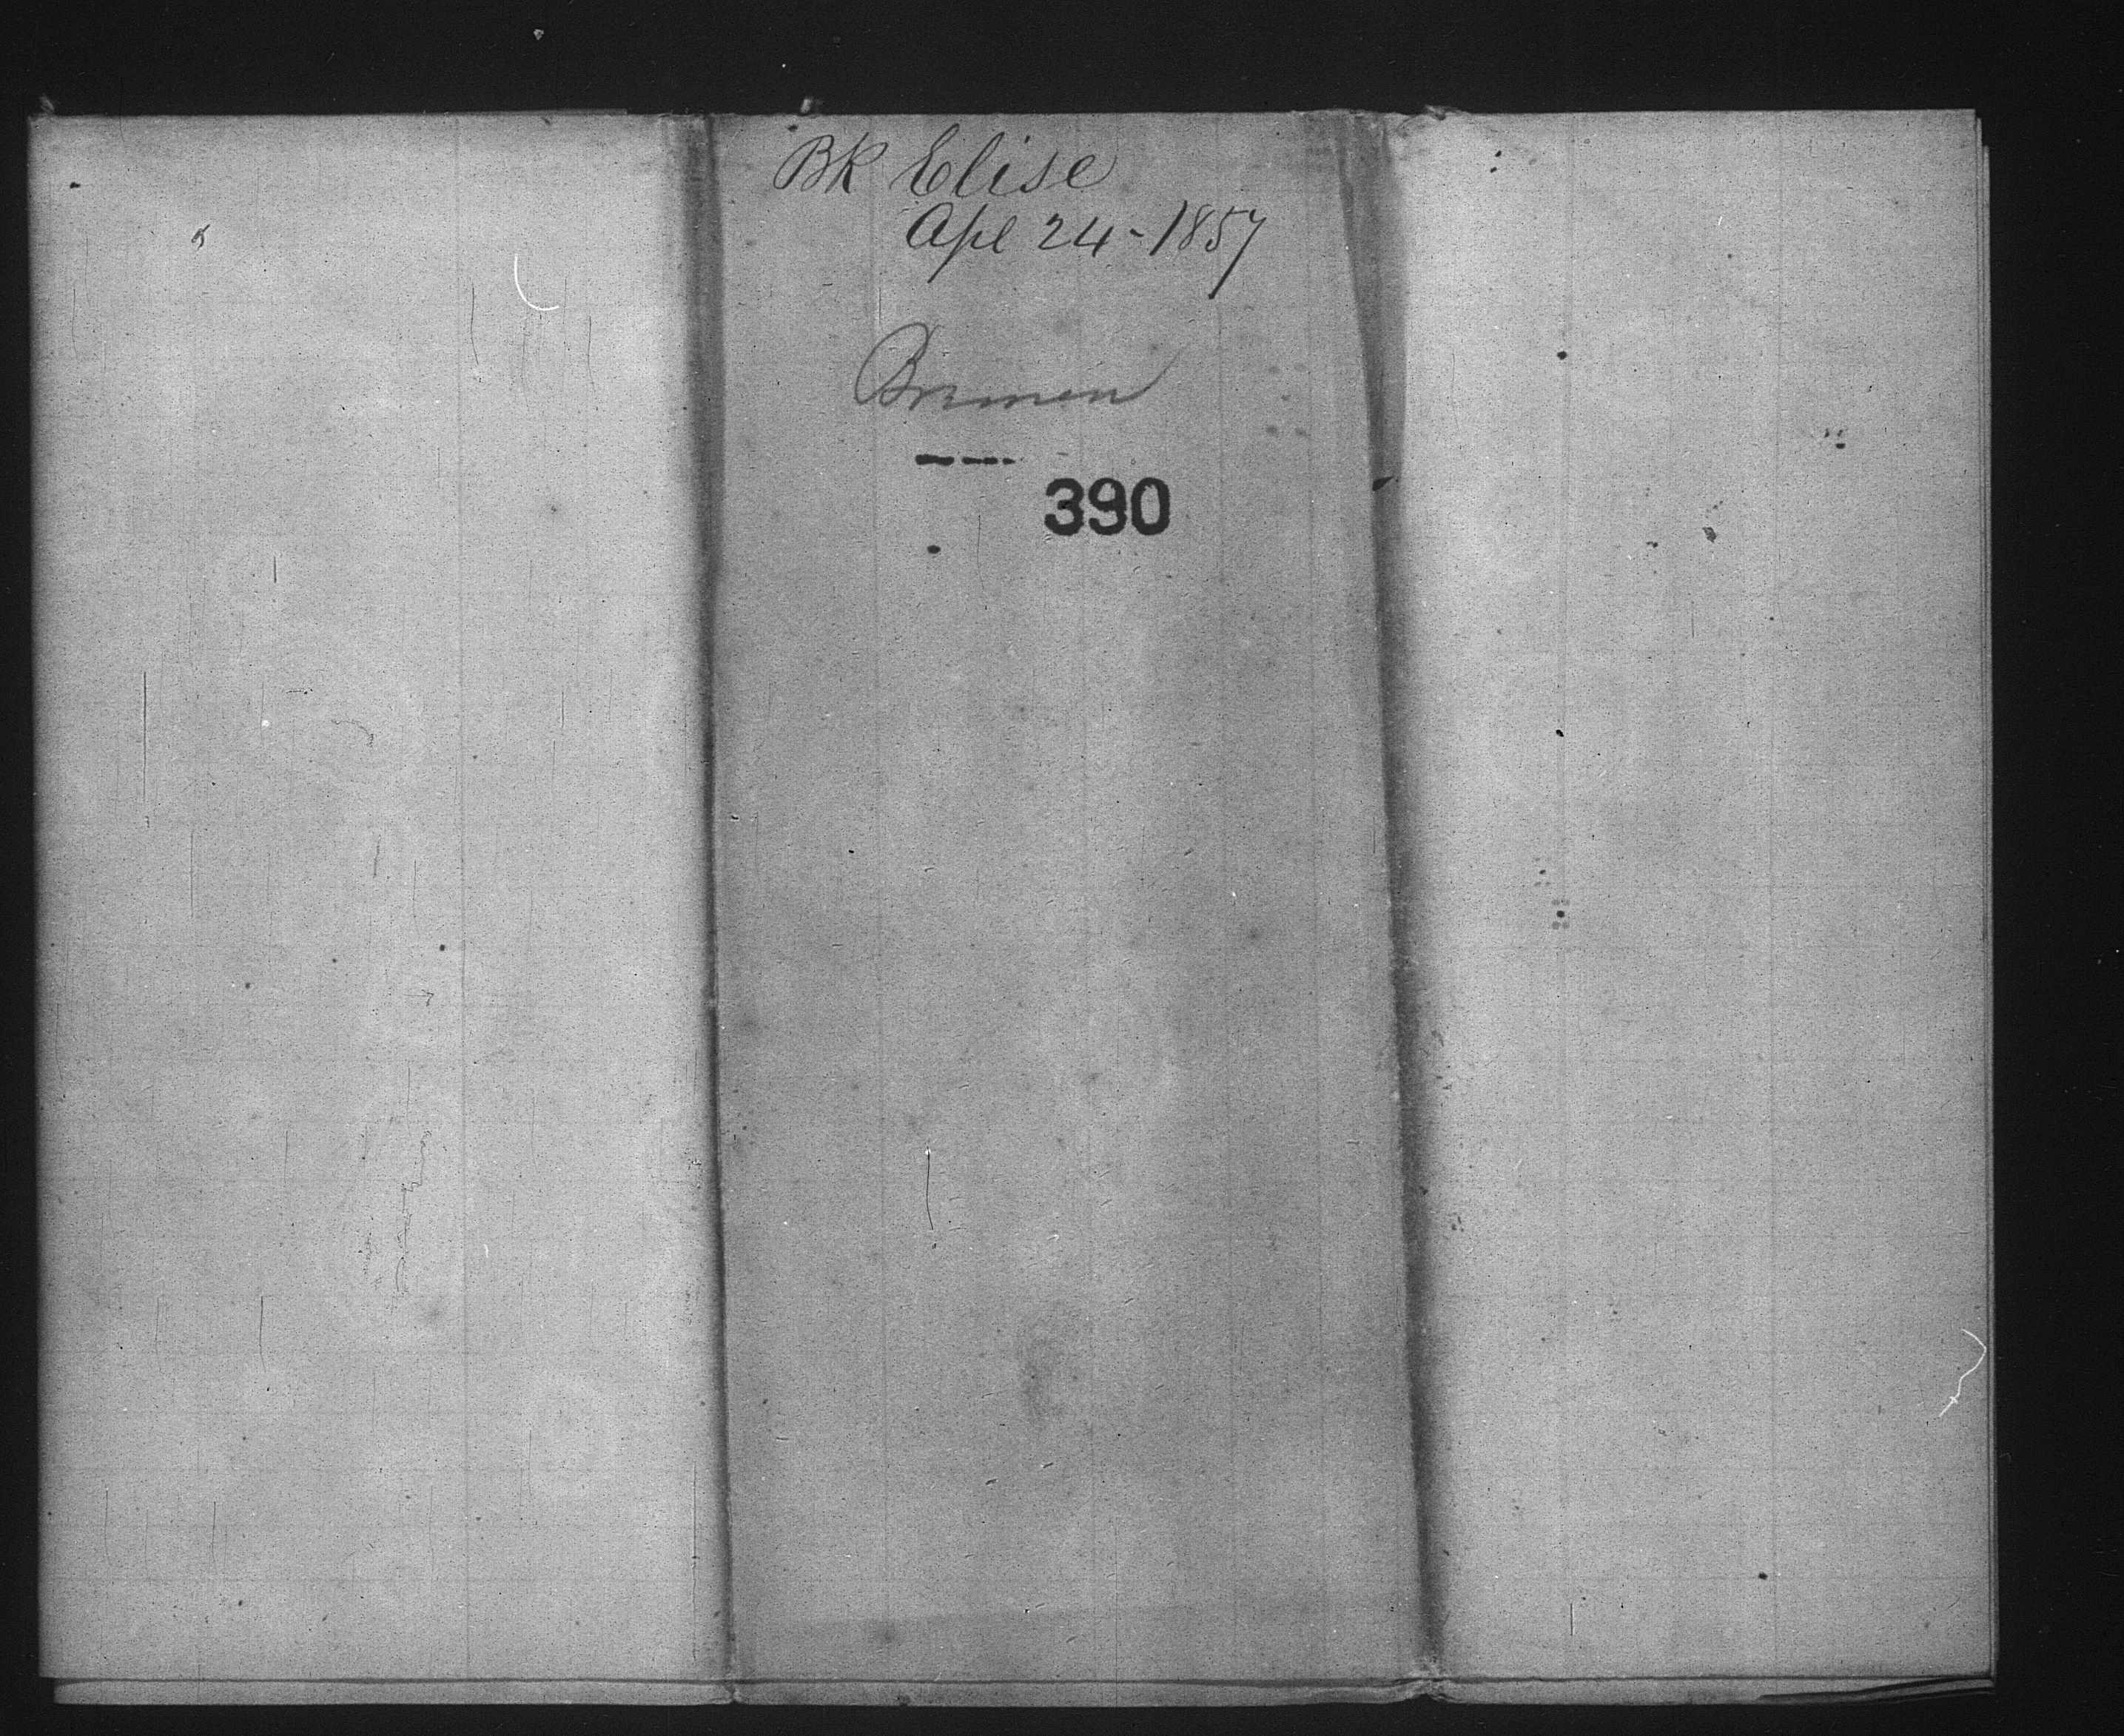 Bk Elise
Apl 24-1857
Bremen
390